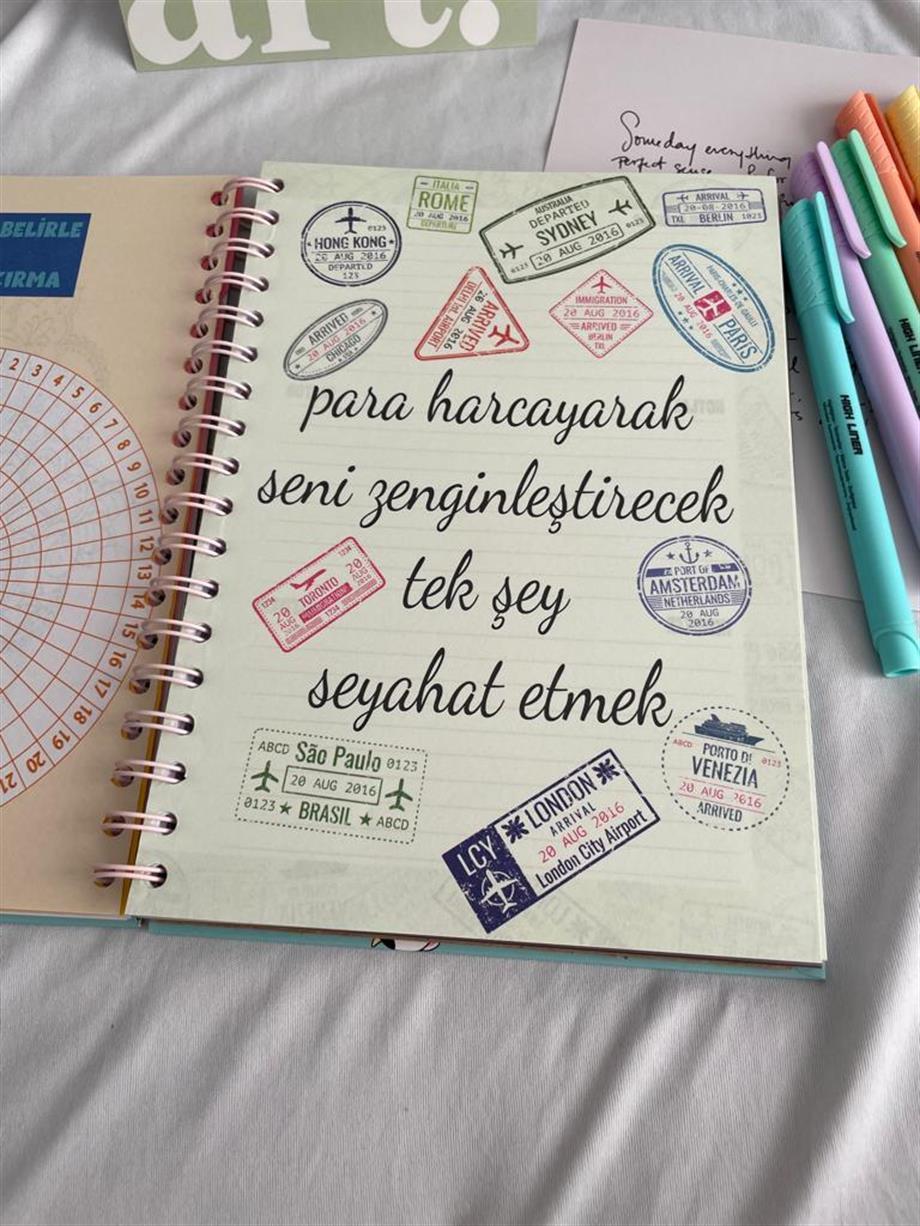 art.
Someday everything
perfect sense
BELİRLE
2 3 4 5 6 7 8 9 10 11 12 13 14 15 16 17 18 19 20 21
HONG KONG
0123
20 AUG 2016
DEPARTED
123
ITALIA
ROME
20 AUG 2016
DEPARTURE
AUSTRALIA
DEPARTED
SYDNEY
20 AUG 2016
0123
0123
ARRIVAL
20-08-2016
TXL BERLIN 0123
ARRIVED
20 AUG 2016
CHICAGO
USA
ARRIVED
20 AUG 2016
DELHI Int. AIRPORT
IMMIGRATION
20 AUG 2016
ARRIVED
BERLIN
TXL
ARRIVAL
PARIS-CHARLES DE GAULLE
20 AUG 2016
PARIS
para harcayarak
seni zenginleştirecek
tek şey
seyahat etmek
1234
20
TORONTO
20
AUG
IMMIGRATION
AUG
2016
1234
2016
1234
PORT OF
AMSTERDAM
NETHERLANDS
20 AUG
2016
ABCD São Paulo 0123
20 AUG 2016
0123 ★ BRASIL ★ ABCD
LCY
LONDON
ARRIVAL
20 AUG 2016
London City Airport
PORTO DI
ABCD
0123
VENEZIA
20 AUG 2016
ARRIVED
HIGH LINER
HIGH LINER